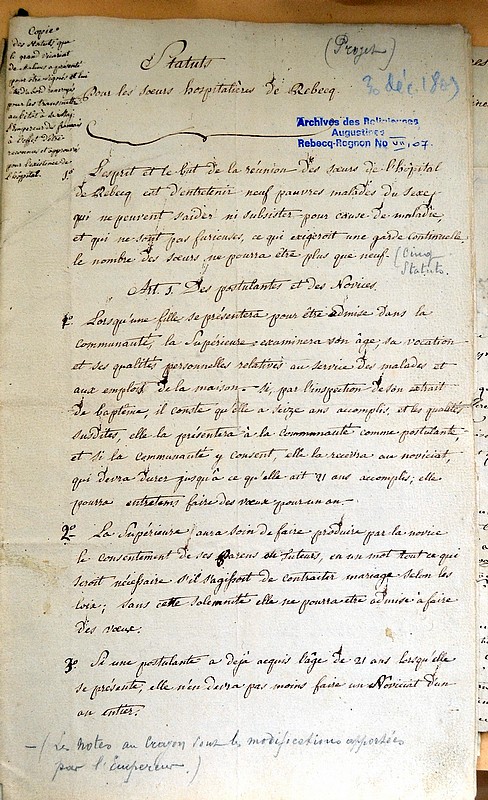 Copie
des Statuts que
le grand vicariat
de Malines a présenté
pour être signés et lui
pour les transmettre
l'Empereur des français
à l'effet d'être
reconnus et approuvés
pour l'existence de
l'hôpital.
(Projet)
Statuts
30 déc. 1809
Pour les sœurs hospitalières de Rebecq.
Archives des Religieuses
Augustines
Rebecq-Rognon No VII, 07.
1º L'esprit et le but de la réunion des sœurs de l'hôpital
de Rebecq est d'entretenir neuf pauvres malades du sexe,
qui ne peuvent s'aider ni subsister pour cause de maladie,
et qui ne sont pas furieuses, ce qui exigeroit une garde continuelle.
le nombre des sœurs ne pourra être plus que neuf. (Cinq
Statuts.
Art. 1. Des postulantes et des Novices.
1º. Lorsqu'une fille se présentera pour être admise dans la
communauté, la Supérieure examinera son âge, sa vocation
et ses qualités personnelles relatives au service des malades et
aux emplois de la maison. si, par l'inspection de son extrait
de baptême, il conste qu'elle a seize ans accomplis, et les qualités
susdites, elle la présentera à la communauté comme postulante,
et si la communauté y consent, elle la recevra au noviciat,
qui devra durer jusqu'à ce qu'elle ait 21 ans accomplis; elle
pourra entretems faire des vœux pour un an.
2º. La Supérieure aura soin de faire produire par la novice
le consentement de ses parens et tuteurs, en un mot tout ce qui
seroit nécessaire s'il s'agissoit de contracter mariage selon les
loix; sans cette solemnité elle ne pourra être admise à faire
des vœux.
3º. Si une postulante a déjà acquis l'âge de 21 ans lorsqu'elle
se présente, elle n'en devra pas moins faire un Noviciat d'un
an entier.
- (Les notes au crayon sont les modifications apportées
par l'Empereur.)